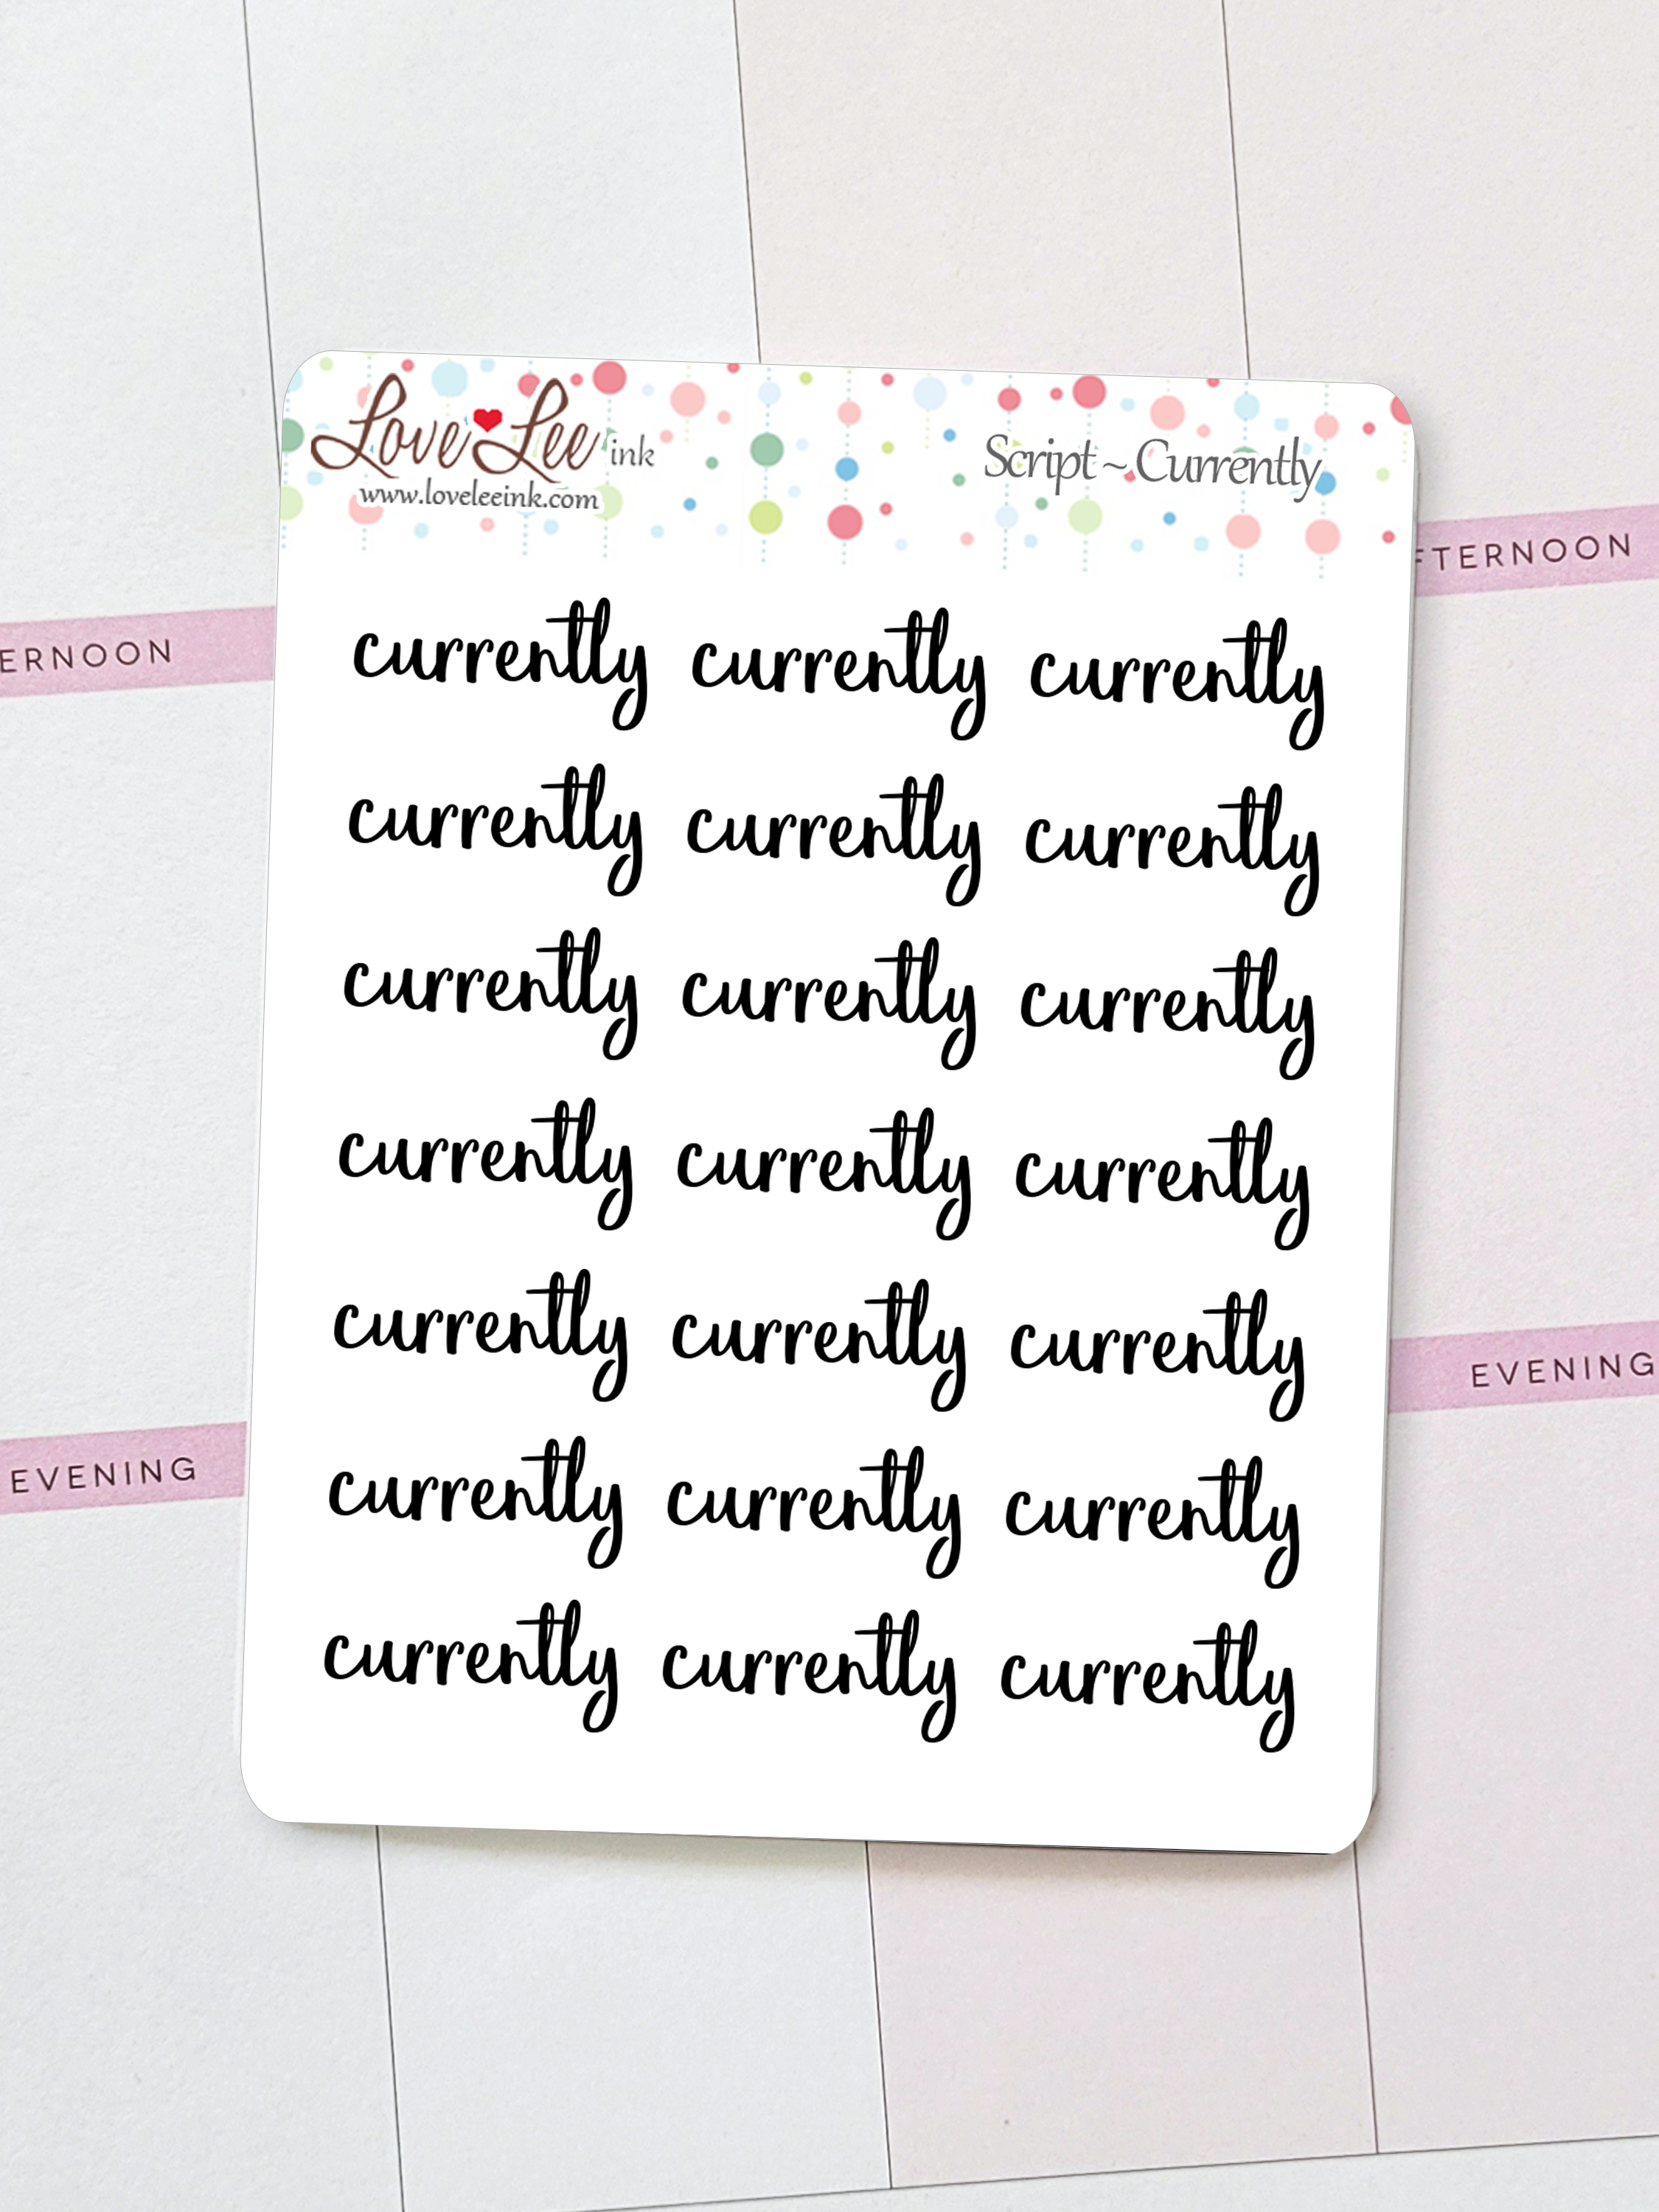 Love Lee ink
www.loveleeink.com
Script ~ Currently
currently currently currently
currently currently currently
currently currently currently
currently currently currently
currently currently currently
currently currently currently
currently currently currently
FTERNOON
ERNOON
EVENING
EVENING